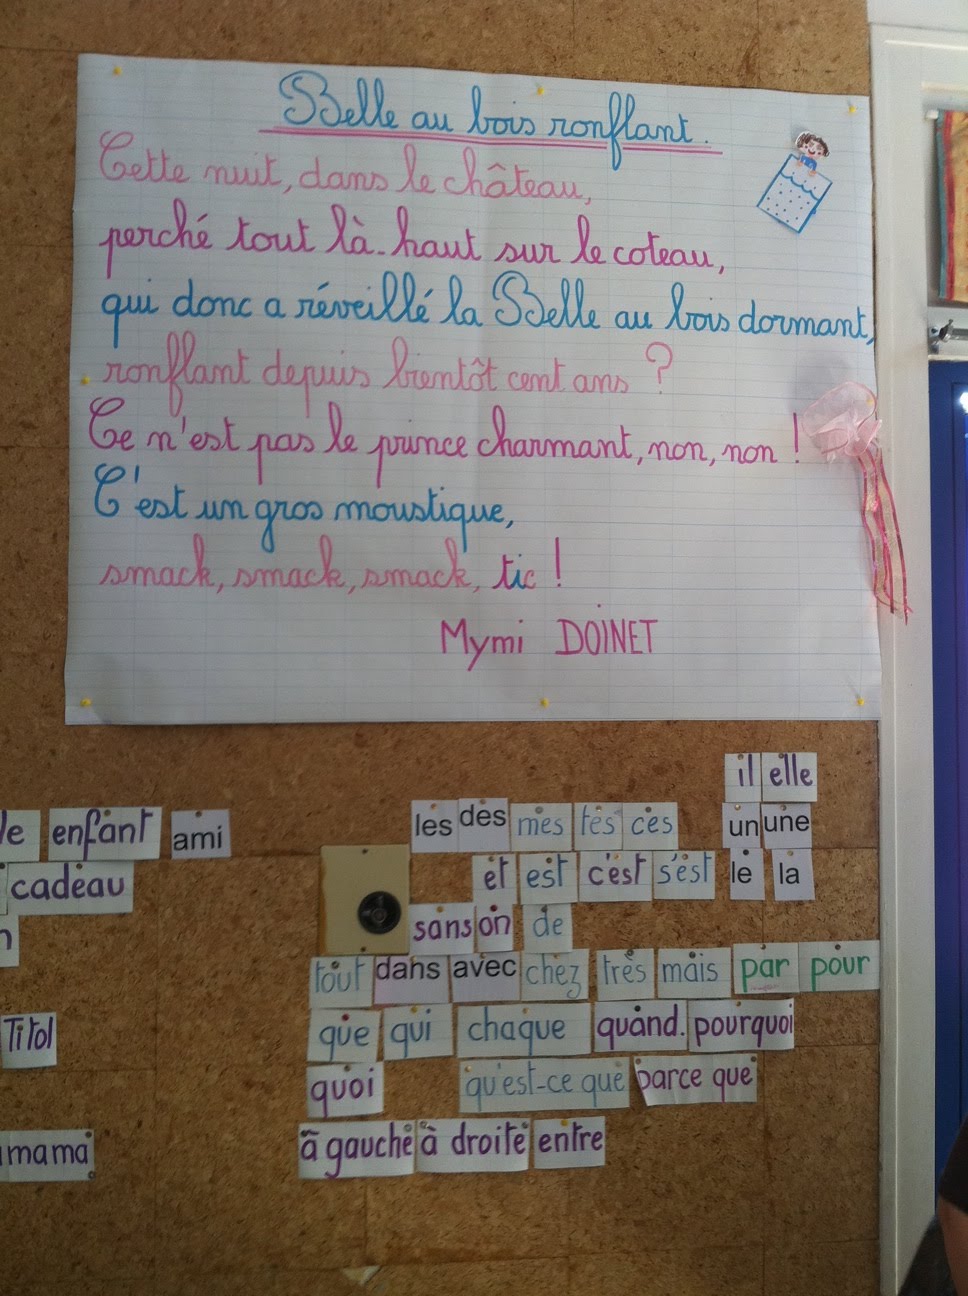 Belle au bois ronflant.
Cette nuit, dans le château,
perché tout là-haut sur le coteau,
qui donc a réveillé la Belle au bois dormant,
ronflant depuis bientôt cent ans ?
Ce n'est pas le prince charmant, non, non !
C'est un gros moustique,
smack, smack, smack, tic !
Mymi DOINET
il elle
enfant ami les des mes tes ces un une
cadeau et est c'est s'est le la
sans on de
tout dans avec chez très mais par pour
Titol que qui chaque quand. pourquoi
quoi qu'est-ce que parce que
mama à gauche à droite entre